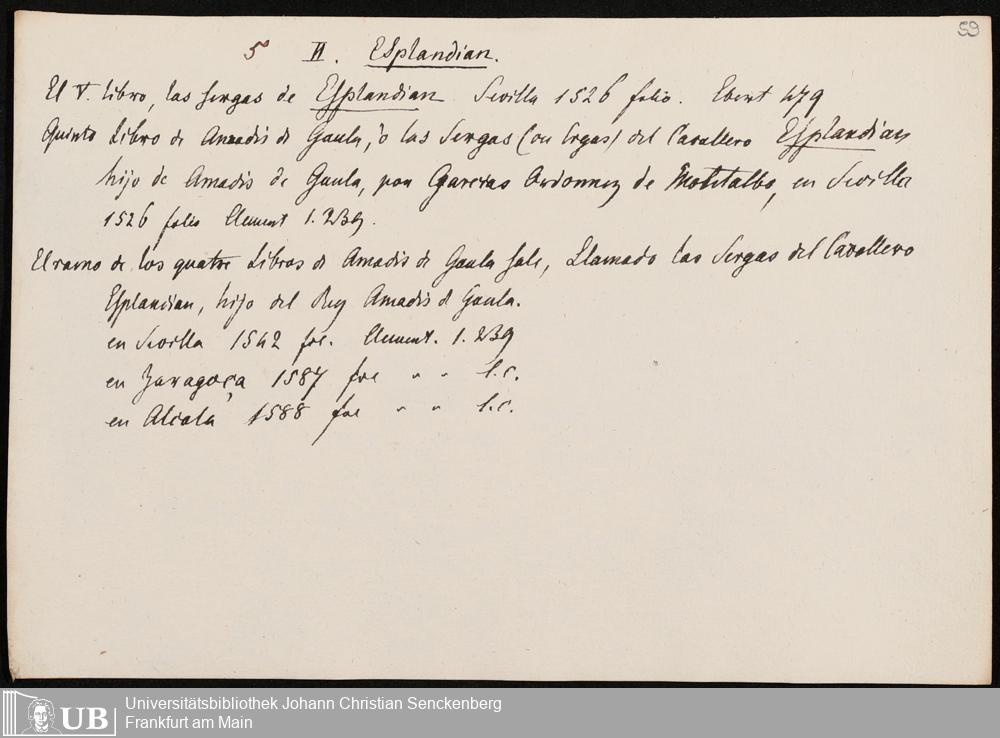 59
5 II. Esplandian.
El V. libro, las sergas de Esplandian Sevilla 1526 folio. Ebert 479
Quinto Libro de Amadis de Gaula, ò las Sergas (ou Ergas) del Cavallero Esplandian
hijo de Amadis de Gaula, por Garcias Ordonnez de Montalbo, en Sevilla
1526 folio Clement 1. 239.
El ramo de los quatre Libros de Amadis de Gaula Sale, Llamado las Sergas del Cavallero
Esplandian, hijo del Rey Amadis d Gaula.
en Sevilla 1542 fol. Clement. 1. 239
en Zaragoça 1587 fol " " l. c.
en Alcala 1588 fol " " l. c.
UB
Universitätsbibliothek Johann Christian Senckenberg
Frankfurt am Main